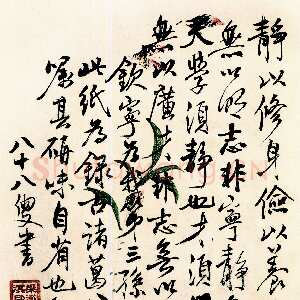 靜以修身儉以养
無以明志非寧靜
夫學須靜也才須
無以廣才非志無以
欽寧为我第三孫
此紙为錄古諸葛
嘱其研味自省也
八十八叟書